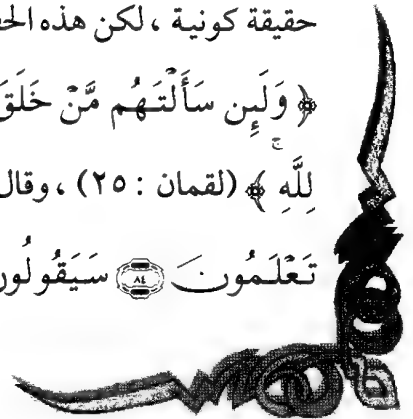 حقيقة كونية ، لكن هذه
﴿ وَلَئِن سَأَلْتَهُم مَّنْ خَلَقَ
لِلَّهِ ﴾ (لقمان : ٢٥) ، وقال
تَعْلَمُونَ ٨٤ سَيَقُولُونَ